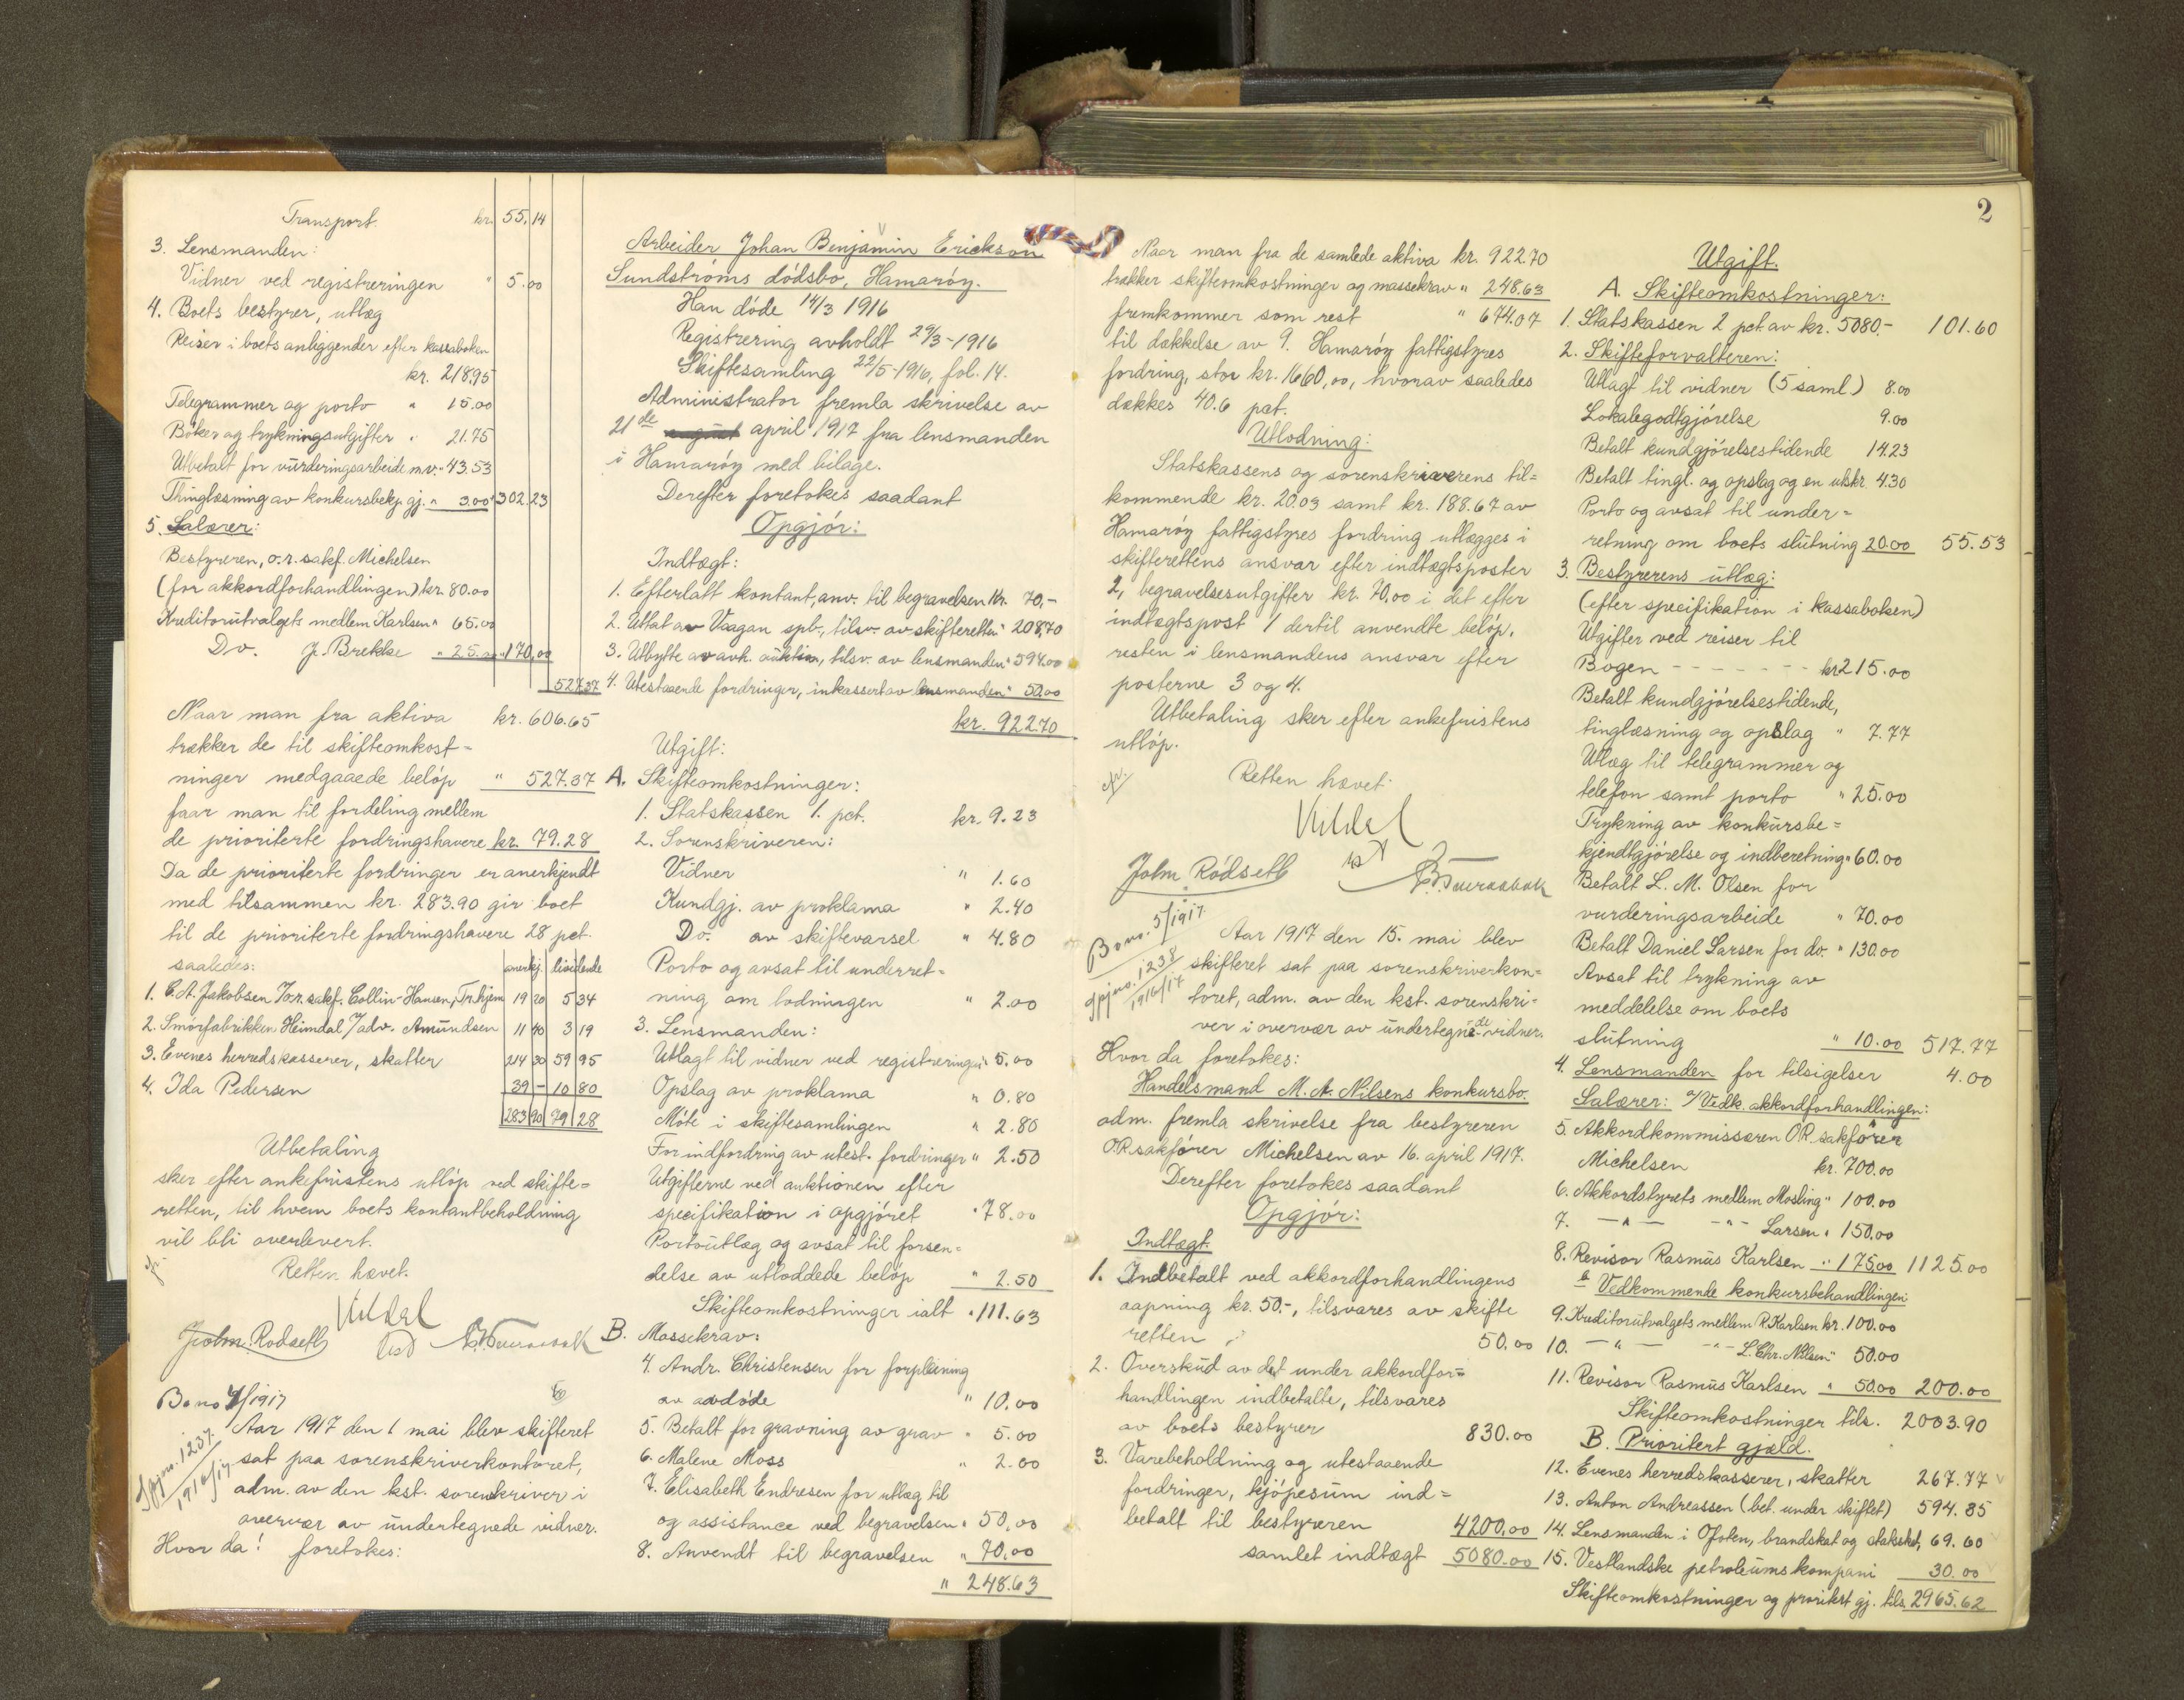 Transport. kr. 55.14
3. Lensmanden:
Vidner ved registreringen " 5.00
4. Boets bestyrer, utlæg
Reiser i boets anliggender efter kassaboken
kr. 218.95
Telegrammer og porto " 15.00
Bøker og trykningsutgifter " 21.75
Utbetalt for vurderingsarbeide m.v. " 43.53
Thinglæsning av konkursbekj.gj. " 3.00 302.23
5. Salærer:
Bestyreren, o.r. sakf. Michelsen
(for akkordforhandlingen) kr. 80.00
Kreditorutvalgets medlem Karlsen " 65.00
Do. J. Brekke " 25.00 " 170.00
527.37
Naar man fra aktiva kr. 606.65
trækker de til skifteomkost=
ninger medgaaede beløp " 527.37
faar man til fordeling mellem
de prioriterte fordringshavere kr. 79.28
Da de prioriterte fordringer er anerkjendt
med tilsammen kr. 283.90 gir boet
til de prioriterte fordringshavere 28 pct.
saaledes: anerkj. dividende
1. C. A. Jakobsen v/o.r. sakf. Collin-Hansen, Tr.hjem 19 20 5 34
2. Smørfabrikken Heimdal v/adv. Amundsen 11 40 3 19
3. Evenes herredskasserer, skatter 214 30 59 95
4. Ida Pedersen 39 - 10 80
283 90 79 28
Utbetaling
sker efter ankefristens utløp ved skifte=
retten, til hvem boets kontantbeholdning
vil bli overlevert.
Retten hævet.
John. Rødseth
Bo no 4/1917
Aar 1917 den 1 mai blev skifteret
Spjno. 1237.
1916/17
sat paa sorenskriverkontoret,
adm. av den kst. sorenskriver i
overvær av undertegnede vidner.
Hvor da! foretokes:
Arbeider Johan Benjamin Erickson
Sundstrøms dødsbo, Hamarøy.
Han døde 14/3 1916
Registrering avholdt 29/3-1916
Skiftesamling 22/5-1916, fol. 14.
Administrator fremla skrivelse av
21de april 1917 fra lensmanden
i Hamarøy med bilage.
Derefter foretokes saadant
Opgjør:
Indtægt:
1. Efterlatt kontant, anv. til begravelsen kr. 70,-
2. Uttat av Vaagan spb., tilsv. av skifteretten " 208,70
3. Utbytte av avh. auktion, tilsv. av lensmanden " 594.00
4. Utestaaende fordringer, inkassert av lensmanden " 50.00
kr. 922.70
Utgift:
A. Skifteomkostninger:
1. Statskassen 1. pct. kr. 9.23
2. Sorenskriveren:
Vidner " 1.60
Kundgj. av proklama " 2.40
Do. av skiftevarsel " 4.80
Porto og avsat til underret=
ning om lodningen " 2.00
3. Lensmanden:
Utlagt til vidner ved registreringen " 5.00
Opslag av proklama " 0.80
Møte i skiftesamlingen " 2.80
For indfordring av utest. fordringer " 2.50
Utgifterne ved auktionen efter
specifikation i opgjøret " 78.00
Portoutlæg og avsat til forsen=
delse av utloddede beløp " 2.50
Skifteomkostninger ialt " 111.63
B. Massekrav:
4. Andr. Christensen for forpleining
av avdøde " 10.00
5. Betalt for gravning av grav " 5.00
6. Malene Moss " 2.00
7. Elisabeth Endresen for utlæg til
og assistance ved begravelsen " 50.00
8. Anvendt til begravelsen " 70.00
" 248.63
2
Naar man fra de samlede aktiva kr. 922.70
trækker skifteomkostninger og massekrav " 248.63
fremkommer som rest " 674.07
til dækkelse av 9. Hamarøy fattigstyres
fordring, stor kr. 1660,00, hvorav saaledes
dækkes 40.6 pct.
Utlodning:
Statskassens og sorenskriverens til=
kommende kr. 20.03 samt kr. 188.67 av
Hamarøy fattigstyres fordring utlægges i
skifterettens ansvar efter indtægtsposter
2, begravelsesutgifter kr. 70,00 i det efter
indtægtspost 1 dertil anvendte beløp.
resten i lensmandens ansvar efter
posterne 3 og 4.
Utbetaling sker efter ankefristens
utløp.
Retten hævet.
John Rødseth
Bo no. 5/1917.
Spjno. 1238
1916/17
Aar 1917 den 15. mai blev
skifteret sat paa sorenskriverkon=
toret, adm. av den kst. sorenskri=
ver i overvær av undertegnede vidner.
Hvor da foretokes:
Handelsmand M. A. Nilsens konkursbo.
adm. fremla skrivelse fra bestyreren
O.R. sakfører Michelsen av 16. april 1917.
Derefter foretokes saadant
Opgjør:
Indtægt.
1. Indbetalt ved akkordforhandlingens
aapning kr. 50.-, tilsvares av skifte
retten 50.00
2. Overskud av det under akkordfor=
handlingen indbetalte, tilsvares
av boets bestyrer 830.00
3. Varebeholdning og utestaaende
fordringer, kjøpesum ind=
betalt til bestyreren 4200.00
samlet indtægt 5080.00
Utgift.
A. Skifteomkostninger:
1. Statskassen 2 pct av kr. 5080.- 101.60
2. Skifteforvalteren:
Utlagt til vidner (5 saml.) 8.00
Lokalegodtgjørelse 9.00
Betalt kundgjørelsestidende 14.23
Betalt tingl. og opslag og en utskr. 4.30
Porto og avsat til under=
retning om boets slutning 20.00 55.53
3. Bestyrerens utlæg:
(efter specifikation i kassaboken)
Utgifter ved reiser til
Bogen - - - - - - - kr 215.00
Betalt kundgjørelsestidende,
tinglæsning og opslag " 7.77
Utlæg til telegrammer og
telefon samt porto " 25.00
Trykning av konkursbe=
kjendtgjørelse og indberetning " 60.00
Betalt L. M. Olsen for
vurderingsarbeide " 70.00
Betalt Daniel Larsen for do. " 130.00
Avsat til trykning av
meddelelse om boets
slutning " 10.00 517.77
4. Lensmanden for tilsigelser 4.00
Salærer: a/ Vedk. akkordforhandlingen:
5. Akkordkommissæren OR. sakfører
Michelsen kr. 700.00
6. Akkordstyrets medlem Mosling " 100.00
7. — " — - " - Larsen " 150.00
8. Revisor Rasmus Karlsen " 175.00 1125.00
b Vedkommende konkursbehandlingen:
9. Kreditorutvalgets medlem R. Karlsen kr. 100.00
10. — " — - " - L. Chr. Nilsen " 50.00
11. Revisor Rasmus Karlsen " 50.00 200.00
Skifteomkostninger tils. 2003.90
B. Prioritert gjæld.
12. Evenes herredskasserer, skatter 267.77
13. Anton Andreassen (bet. under skiftet) 594.85
14. Lensmanden i Ofoten, brandskat og 69.60
15. Vestlandske petroleumskompani 30.00
Skifteomkostninger og prioritert gj. tils. 2965.62